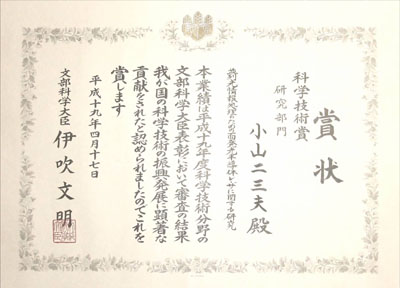 賞状
科学技術賞
研究部門
小山二三夫殿
並列光情報処理のための面発光半導体レーザに関する研究
本業績は平成十九年度科学技術分野の
文部科学大臣表彰において審査の結果
我が国の科学技術の振興発展に顕著な
貢献をされたと認められましたのでこれを
賞します
平成十九年四月十七日
文部科学大臣 伊吹文明